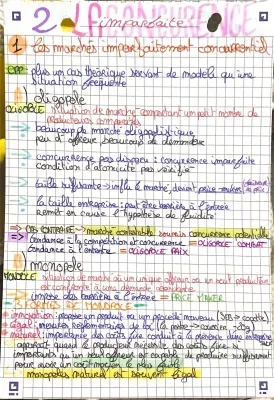 2 LA CONCURRENCE
imparfaite
1 les marchés imparfaitement concurrentiel
CPP = plus un cas théorique servant de modèle qu'une
situation fréquente
1) oligopole
OLIGOPOLE situation de marché comportant un petit nombre de
producteurs comparés
beaucoup de marché oligopolistique
peu d'offreur beaucoup de demandeur
concurrence pas disparu : concurrence imparfaite
condition d'atomicité pas vérifié
taille suffisante → influ le marché, devient price maker
faiseur de prix
la taille entreprise : peut être barrière à l'entrée
Remet en cause l'hypothèse de fluidité
→ CAS CONTRAIRE → marché contestable soumis concurrence potentielle
tendance à la compétition et concurrence = OLIGOPOLE COMBAT
tendance à l'entente = OLIGOPOLE PAIX
monopole
MONOPOLE situation de marché où un unique offreur ou seul producteur
est confronté à une demande abondante
existe des barrière à l'entrée = PRICE MAKER
3 FORMES DE MONOPOLE
innovation : propose un produit ou un procédé nouveau
légal : mesures réglementaires de loi
naturel : importance des coûts fixe conduit à la présence d'une entreprise
apparaît quand la production nécessite des coûts fixe si
importants qu'un seul offreur est capable de produire suffisamment
pour avoir un coût moyen le plus faible
monopoles naturel est souvent légal